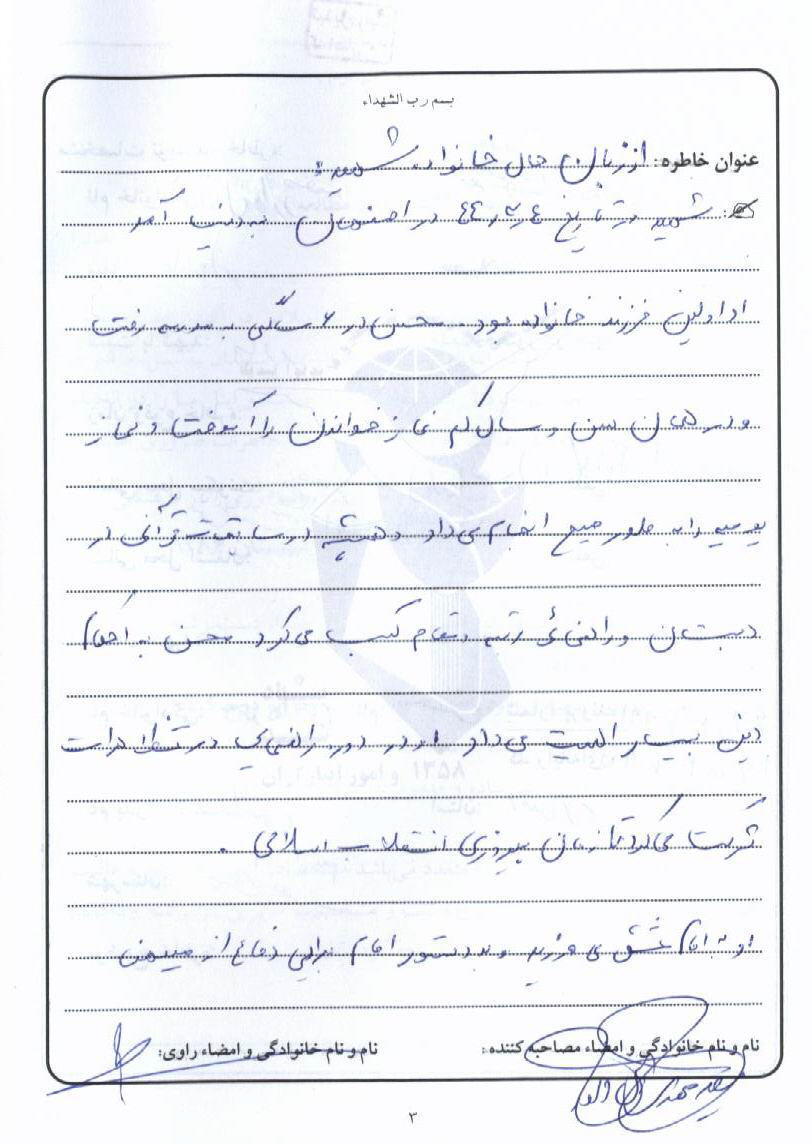 بسم رب الشهداء
عنوان خاطره: از زبان حال خانواده شهید:
شهید در تاریخ ۴۴/۳/۴ در اصفهان بدنیا آمد
او اولین فرزند خانواده بود. محسن در ۶ سالگی به مدرسه رفت
و در همان سن و سال کم نماز خواندن را آموخت و نماز
یومیه را به طور صحیح انجام می‌داد و همیشه در مسابقات قرآنی در
دبستان و راهنمائی رتبه و مقام کسب می‌کرد محسن به احکام
دین بسیار اهمیت می‌داد او در دوره راهنمایی در تظاهرات
شرکت می‌کرد تا زمان پیروزی انقلاب اسلامی .
او به امام عشق می ورزید و به دستور امام برای دفاع از میهن
نام و نام خانوادگی و امضاء مصاحبه کننده:
نام و نام خانوادگی و امضاء راوی:
۳